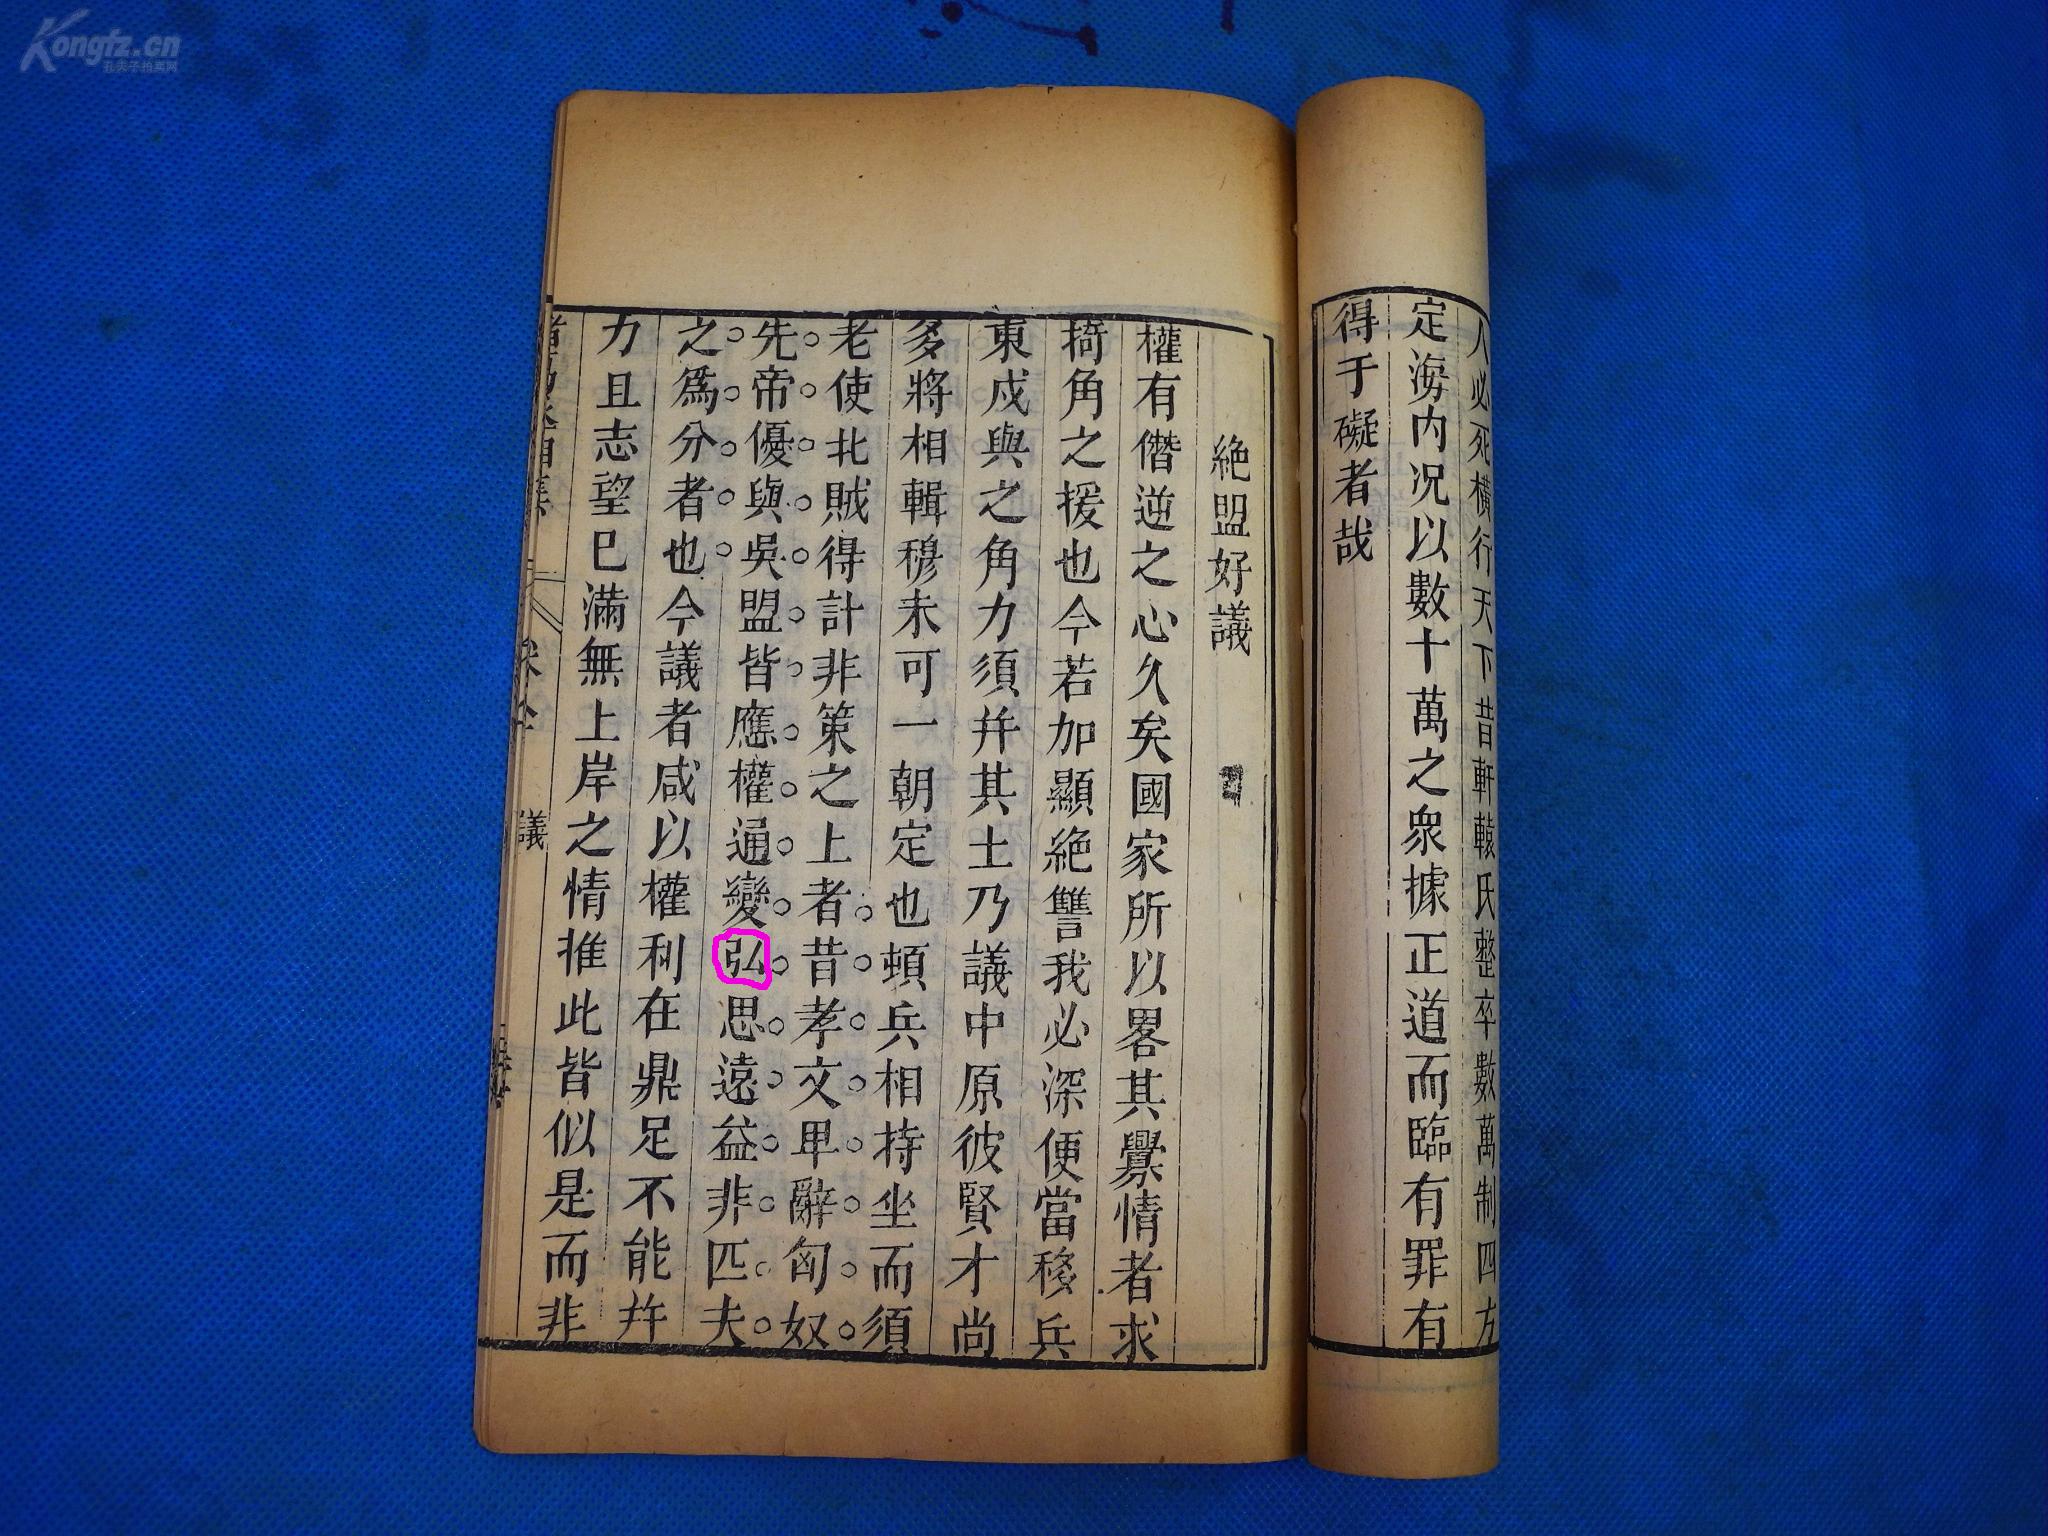 Kongfz.cn
孔夫子拍卖网
人必死橫行天下昔軒轅氏整卒數萬制四方
定海内况以數十萬之衆據正道而臨有罪有
得于礙者哉
絶盟好議
權有僭逆之心久矣國家所以畧其釁情者求
掎角之援也今若加顯絶讐我必深便當移兵
東戍與之角力須幷其土乃議中原彼賢才尚
多將相輯穆未可一朝定也頓兵相持坐而須
老使北賊得計非策之上者昔孝文卑辭匈奴
先帝優與吳盟皆應權通變弘思遠益非匹夫
之爲分者也今議者咸以權利在鼎足不能幷
力且志望已滿無上岸之情推此皆似是而非
議